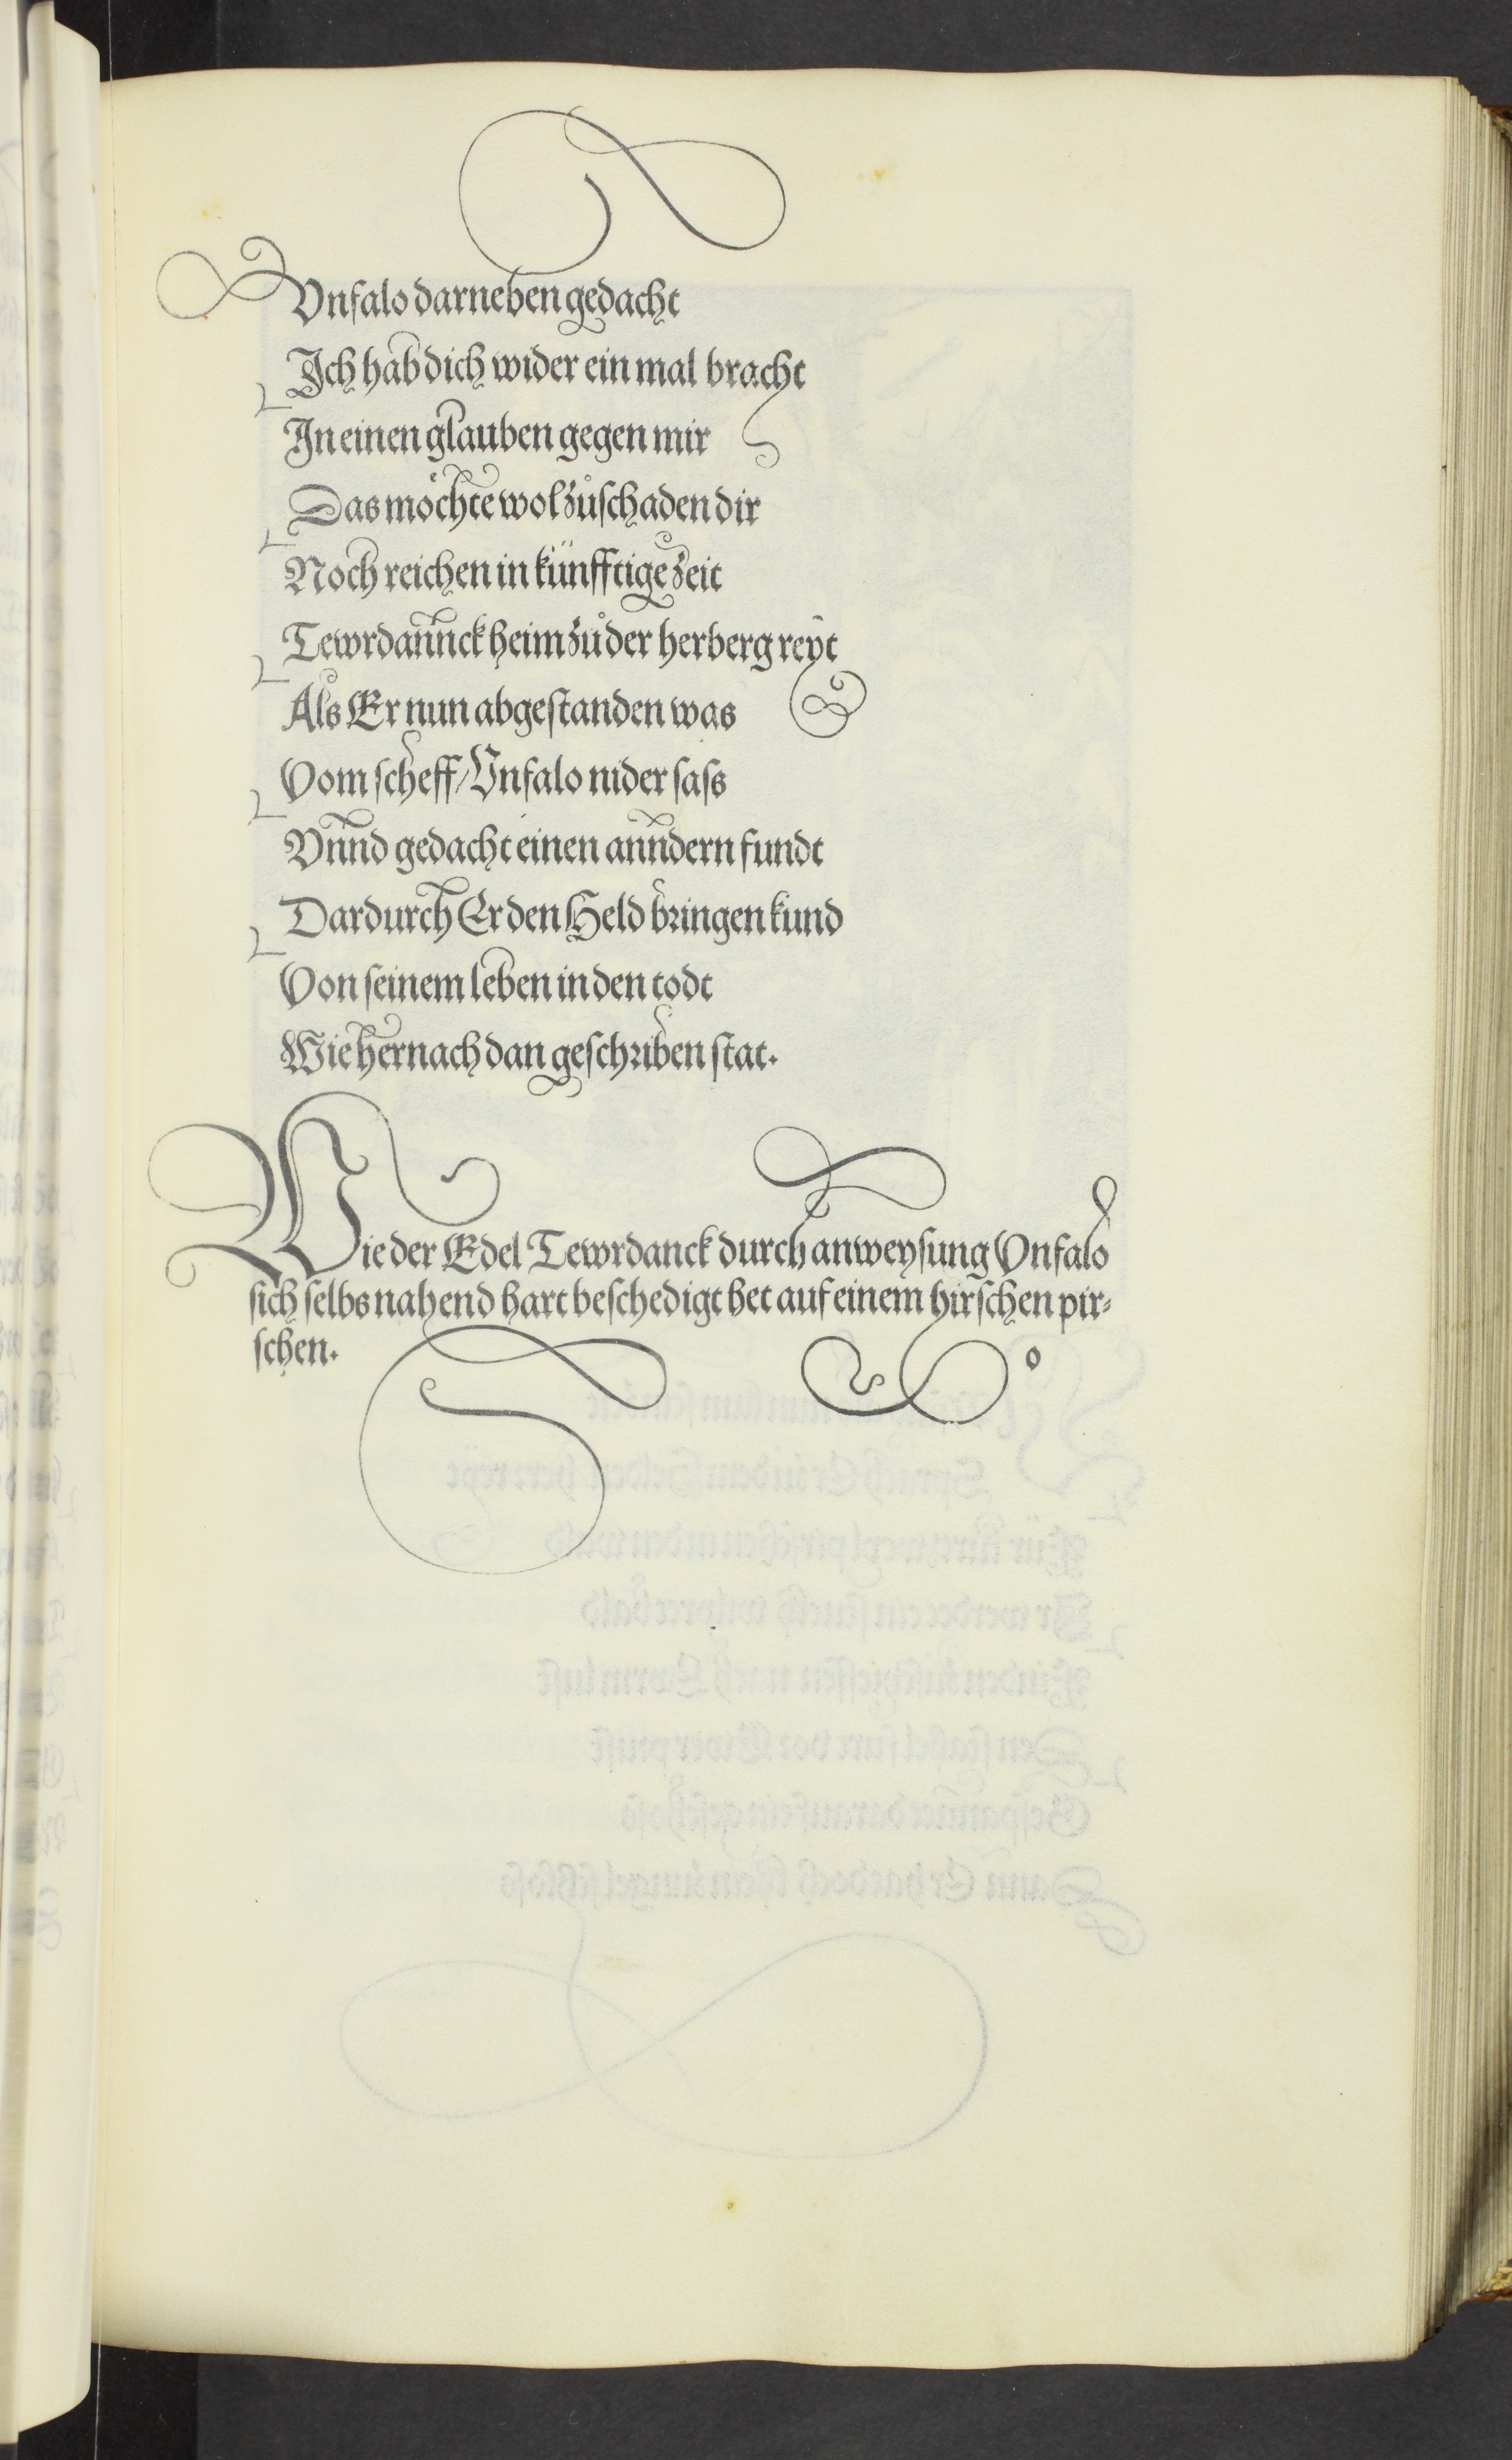 Vnfalo darneben gedacht
Ich hab dich wider ein mal bracht
In einen glauben gegen mir
Das möchte wol zůschaden dir
Noch reichen in künfftige zeit
Tewrdannck heim zůder herberg reÿt
Als Er nun abgestanden was
Vom scheff/Vnfalo nider sass
Vnnd gedacht einen anndern fundt
Dardurch Er den Held bringen kund
Von seinem leben in den todt
Wie hernach dan geschriben stat.
Wie der Edel Tewrdanck durch anweysung Vnfalo
sich selbs nahend hart beschedigt het auf einem hirschen pir⸗
schen.
o